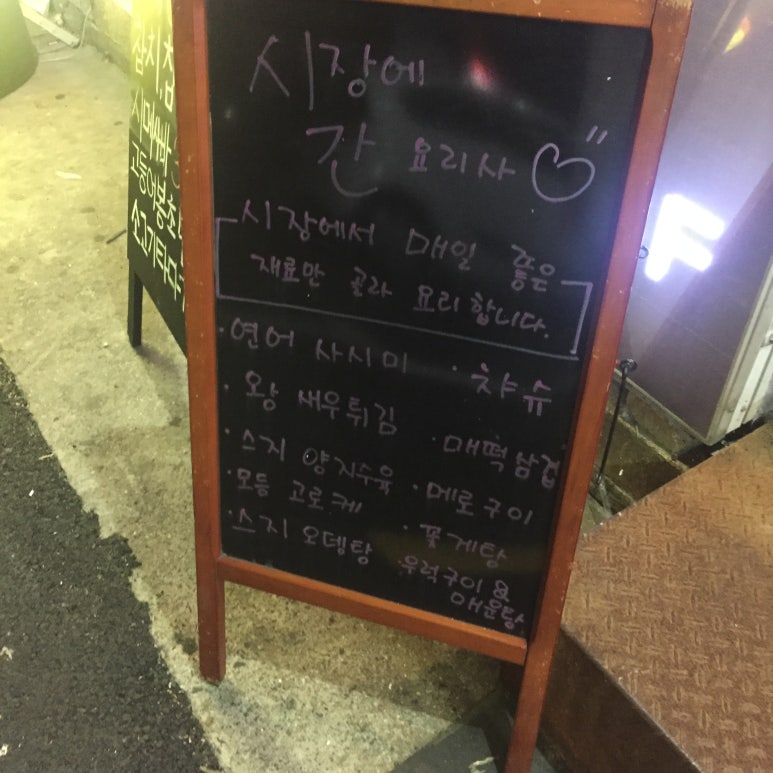 시장에
간 요리사
시장에서 매일 좋은
재료만 골라 요리합니다.
· 연어 사시미 · 챠슈
· 왕 새우튀김 · 매떡삼겹
· 스지 양지수육 · 메로구이
· 모듬 고로케 · 꽃게탕
· 스지 오뎅탕 · 우럭구이 &
매운탕
삼치,
시메빠
고등어봉초
소고기타다